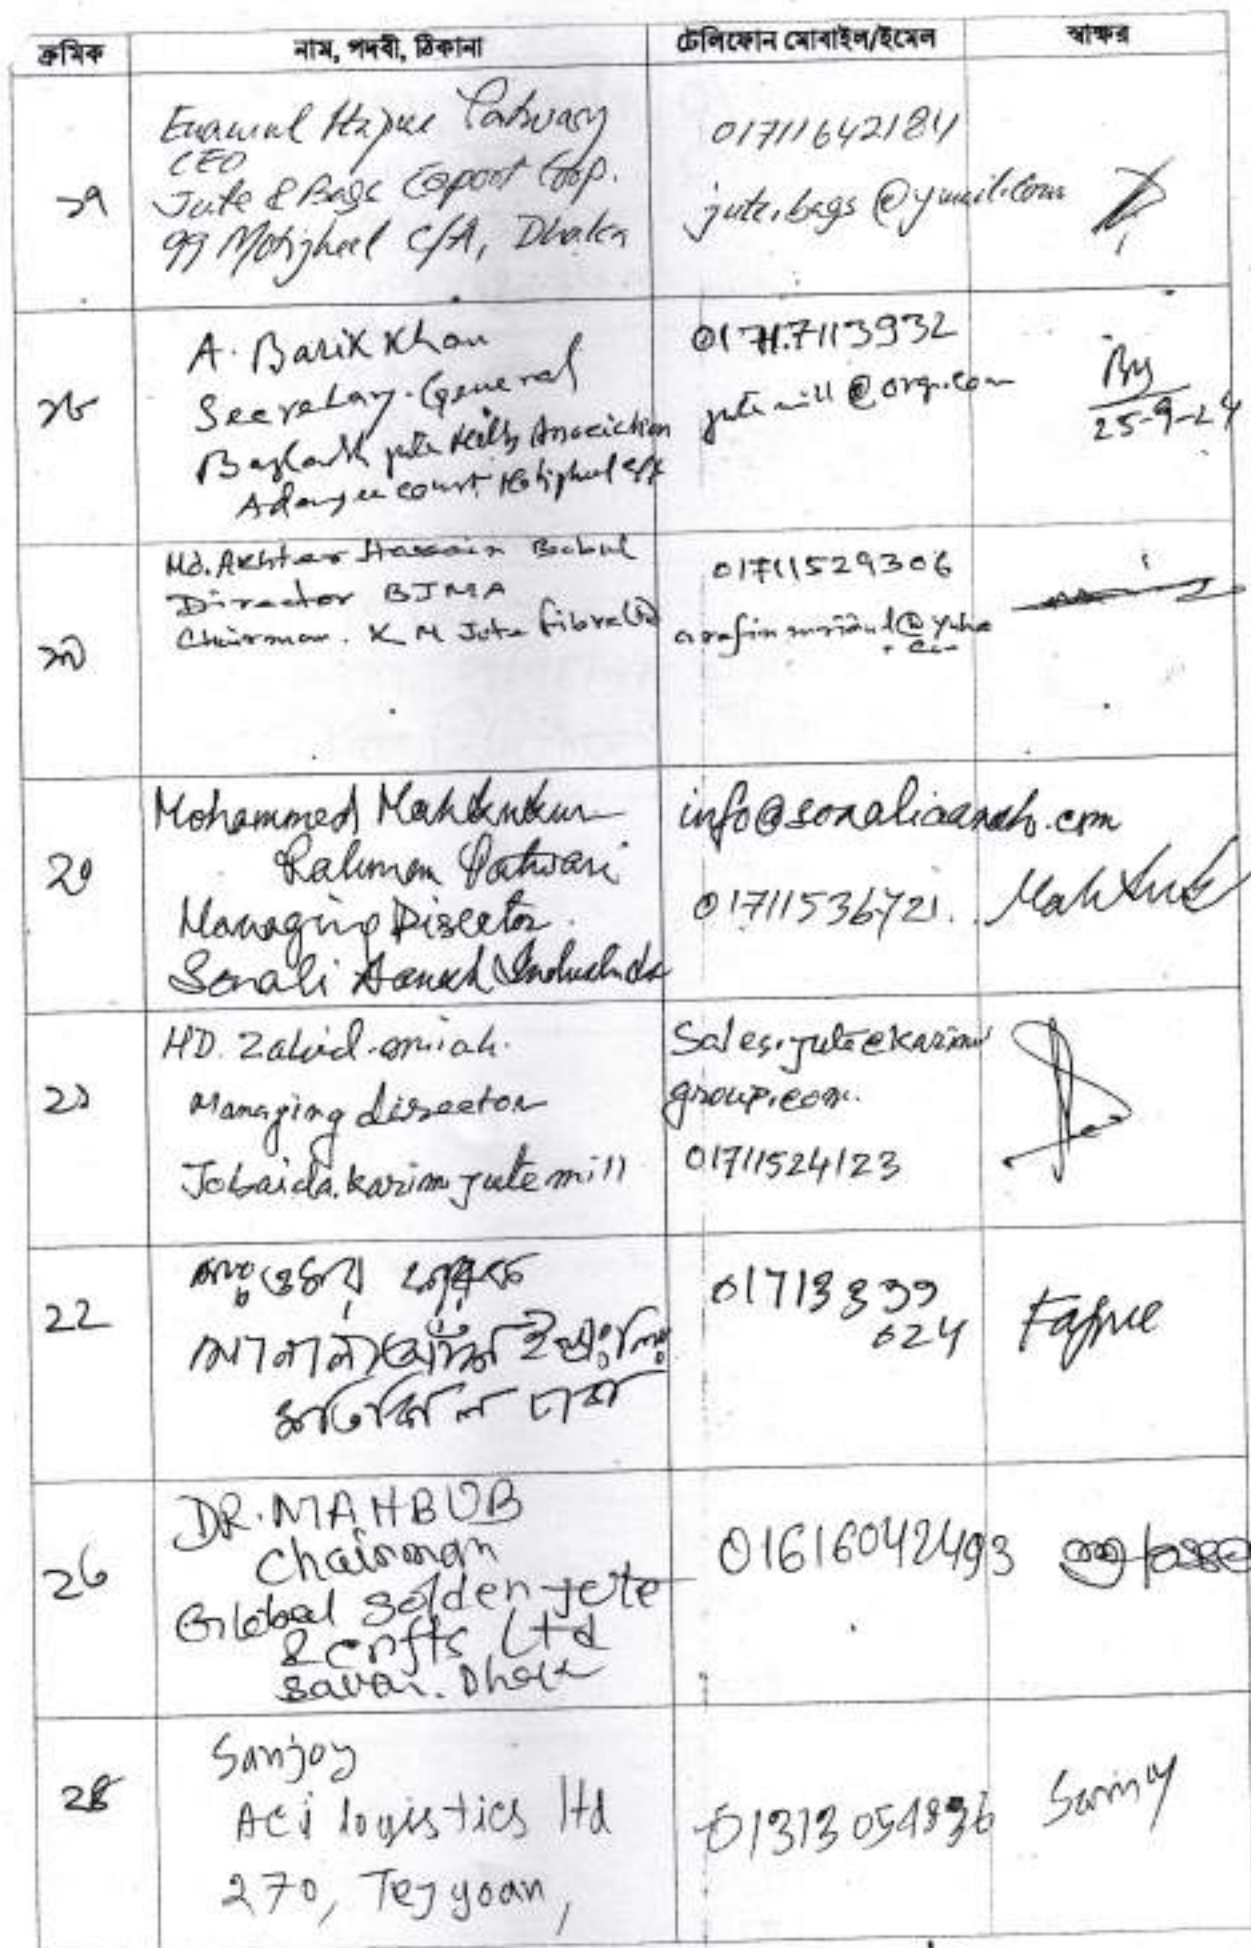 ক্রমিক
নাম, পদবী, ঠিকানা
টেলিফোন মোবাইল/ইমেল
স্বাক্ষর
১৭
Enamul Haque Patwary
CEO
Jute & Bags Export Corp.
99 Motijheel C/A, Dhaka
01711642184
jute.bags@ymail.com
১৮
A. Barik Khan
Secretary-General
Jute Mills Association
Adamjee court Motijheel C/A
7113932
jutemill@org.com
25-9-24
১৯
Md. Akhter Hossain Babul
Director BJMA
Chairman. K M Jute fibre
01711529306
২০
Mohammed Mahbubur
Rahman Patwari
Managing Director
Sonali Aansh Industries
info@sonaliaansh.com
01711536721.
২১
MD. Zahid miah.
Managing director
Jobaida.karim jute mill
Sales.jute@karim
group.com.
01711524123
২২
সোনালী আঁশ ইন্ডাঃ লিঃ
মতিঝিল ঢাকা
01713339
624
২৩
DR. MAHBUB
Chairman
Global golden jute
& crafts Ltd
Savar. Dhaka
01616042493
২৪
Sanjoy
ACI logistics ltd
270, Tejgoan,
01313054836